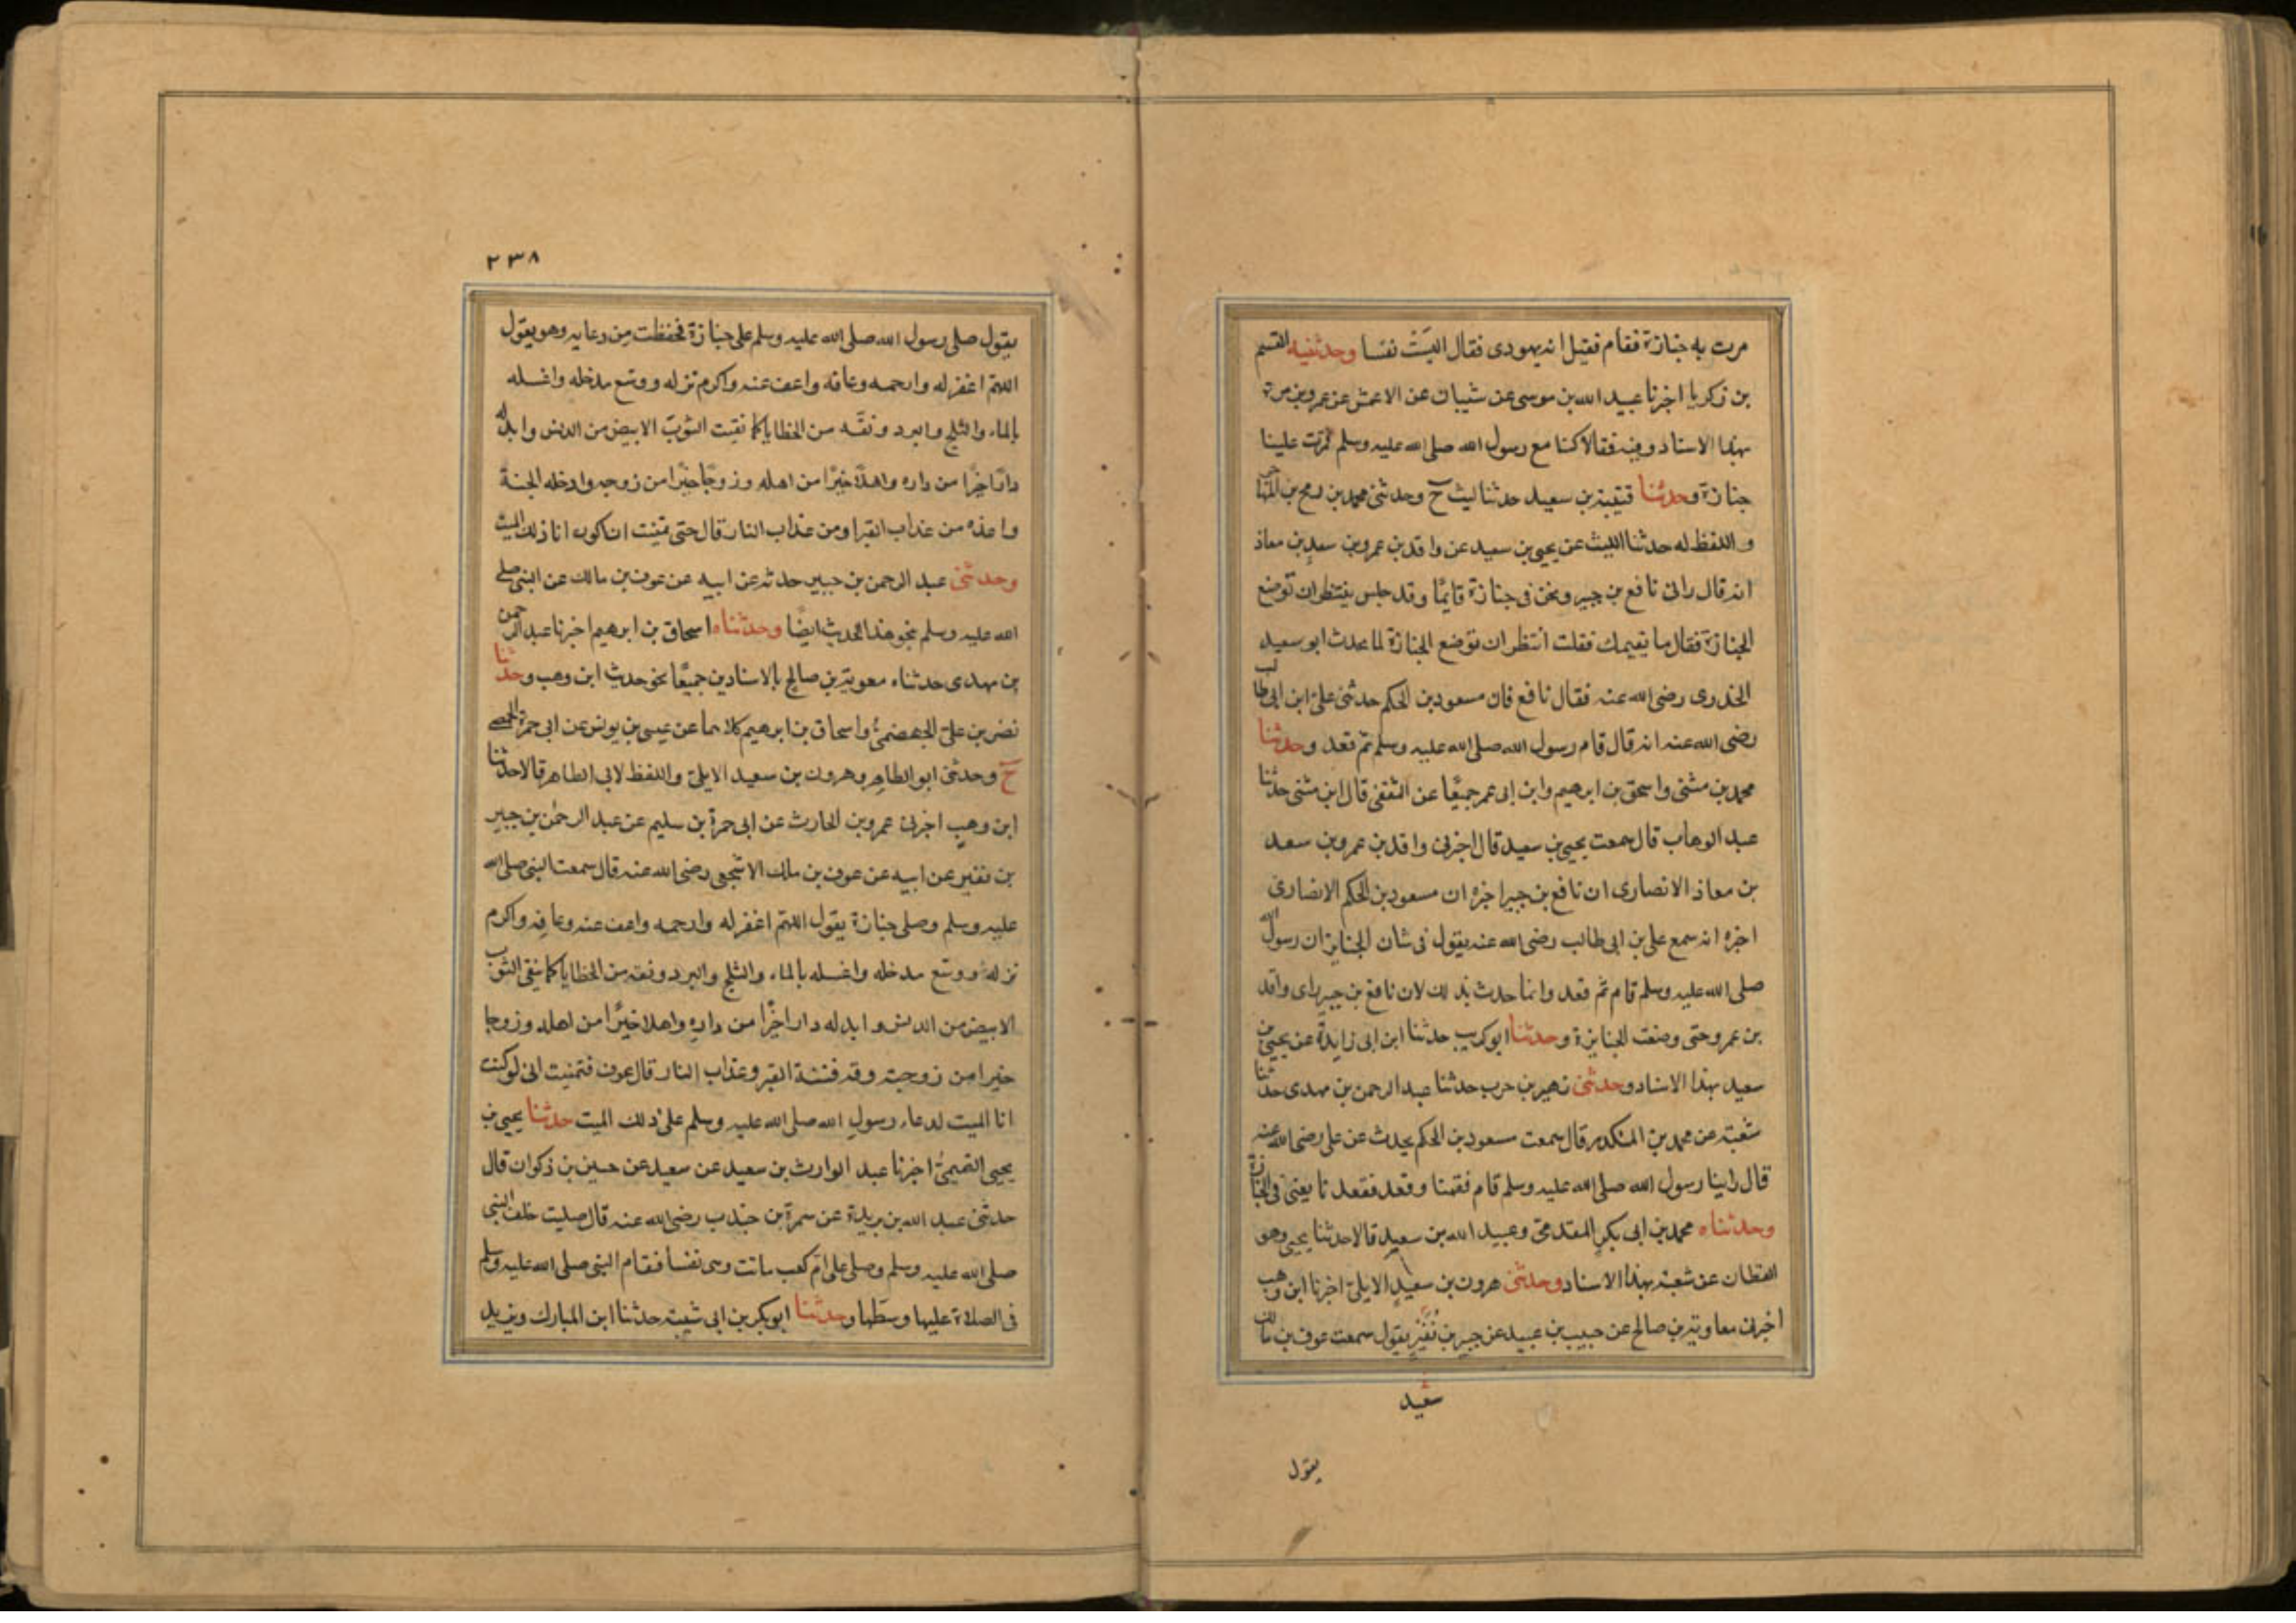 مرت به جنازة فقام فقيل انه يهودى فقال اليست نفسا وحدثنيه القسم
بن زكريا اخبرنا عبيد الله بن موسى عن شيبان عن الاعمش عن عمرو بن مرة
بهذا الاسناد وفيه فقالا كنا مع رسول الله صلى الله عليه وسلم فمرت علينا
جنازة وحدثنا قتيبة بن سعيد حدثنا ليث ح وحدثنى محمد بن رمح بن المهاجر
واللفظ له حدثنا الليث عن يحيى بن سعيد عن واقد بن عمرو بن سعد بن معاذ
انه قال رانى نافع بن جبير ونحن فى جنازة قايمًا وقد جلس ينتظر ان توضع
الجنازة فقال ما يقيمك فقلت انتظر ان توضع الجنازة لما يحدث ابو سعيد
الخدرى رضى الله عنه فقال نافع فان مسعود بن الحكم حدثنى على ابن ابى طالب
رضى الله عنه انه قال قام رسول الله صلى الله عليه وسلم ثم قعد وحدثنا
محمد بن مثنى واسحق بن ابرهيم وابن ابى عمر جميعًا عن الثقفى قال ابن مثنى حدثنا
عبد الوهاب قال سمعت يحيى بن سعيد قال اخبرنى واقد بن عمرو بن سعد
بن معاذ الانصارى ان نافع بن جبير اخبره ان مسعود بن الحكم الانصارى
اخبره انه سمع على بن ابى طالب رضى الله عنه يقول فى شان الجنايز ان رسول الله
صلى الله عليه وسلم قام ثم قعد وانما حدث بذلك لان نافع بن جبير راى واقد
بن عمرو حتى وضعت الجنازة وحدثنا ابو كريب حدثنا ابن ابى زايدة عن يحيى بن
سعيد بهذا الاسناد وحدثنى زهير بن حرب حدثنا عبد الرحمن بن مهدى حدثنا
شعبة عن محمد بن المنكدر قال سمعت مسعود بن الحكم يحدث عن على رضى الله عنه
قال راينا رسول الله صلى الله عليه وسلم قام فقمنا وقعد فقعدنا يعنى فى الجنازة
وحدثناه محمد بن ابى بكر المقدمى وعبيد الله بن سعيد قالا حدثنا يحيى وهو
القطان عن شعبة بهذا الاسناد وحدثنى هرون بن سعيد الايلى اخبرنا ابن وهب
اخبرنى معاوية بن صالح عن حبيب بن عبيد عن جبير بن نُفَيْرٍ يقول سمعت عوف بن مالك
سعيد
يقول
٢٣٨
يقول صلى رسول الله صلى الله عليه وسلم على جنازة فحفظت من دعايه وهو يقول
اللهم اغفر له وارحمه وعافه واعف عنه واكرم نزله ووسع مدخله واغسله
بالماء والثلج والبرد ونقه من الخطايا كما نقيت الثوب الابيض من الدنس وابدله
دارًا خيرًا من داره واهلًا خيرًا من اهله وزوجًا خيرًا من زوجه وادخله الجنة
واعذه من عذاب القبر او من عذاب النار قال حتى تمنيت ان اكون انا ذلك الميت
وحدثنى عبد الرحمن بن جبير حدثه عن ابيه عن عوف بن مالك عن النبى صلى
الله عليه وسلم بنحو هذا الحديث ايضًا وحدثناه اسحاق بن ابرهيم اخبرنا عبد الرحمن
بن مهدى حدثناه معوية بن صالح بالاسنادين جميعًا نحو حديث ابن وهب وحدثنا
نصر بن على الجهضمى واسحاق بن ابرهيم كلاهما عن عيسى بن يونس عن ابى حمزة الحمصى
ح وحدثنى ابو الطاهر وهرون بن سعيد الايلى واللفظ لابى الطاهر قالا حدثنا
ابن وهب اخبرنى عمرو بن الحارث عن ابى حمزة بن سليم عن عبد الرحمٰن بن جبير
بن نفير عن ابيه عن عوف بن مالك الاشجعى رضى الله عنه قال سمعت النبى صلى الله
عليه وسلم وصلى جنازة يقول اللهم اغفر له وارحمه واعف عنه وعافه واكرم
نزله ووسع مدخله واغسله بالماء والثلج والبرد ونقه من الخطايا كما ينقى الثوب
الابيض من الدنس وابدله دارا خيرًا من داره واهلا خيرًا من اهله وزوجا
خيرا من زوجته وقه فتنة القبر وعذاب النار قال عوف فتمنيت انى لو كنت
انا الميت لدعاء رسول الله صلى الله عليه وسلم على ذلك الميت حدثنا يحيى بن
يحيى التميمىُّ اخبرنا عبد الوارث بن سعيد عن سعيد عن حسين بن ذكوان قال
حدثنى عبد الله بن بريدة عن سمرة بن جندب رضى الله عنه قال صليت خلف النبى
صلى الله عليه وسلم وصلى على ام كعب ماتت وهى نفسأ فقام النبى صلى الله عليه وسلم
فى الصلاة عليها وسطها وحدثنا ابو بكر بن ابى شيبة حدثنا ابن المبارك ويزيد